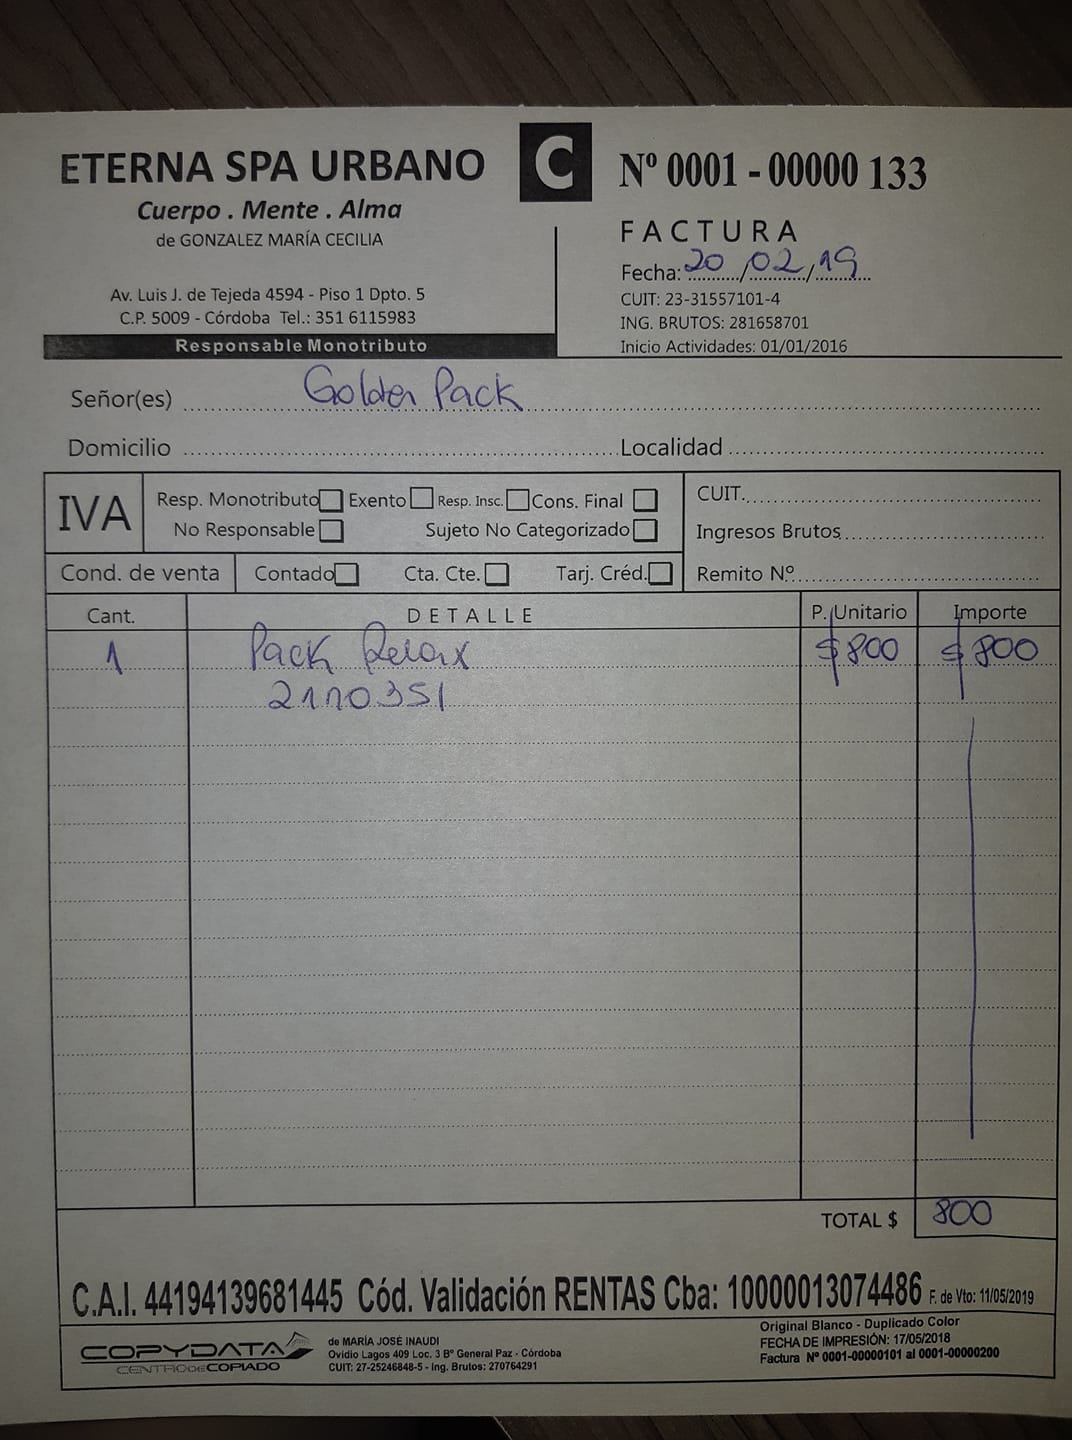 ETERNA SPA URBANO
Cuerpo . Mente . Alma
de GONZALEZ MARÍA CECILIA
Av. Luis J. de Tejeda 4594 - Piso 1 Dpto. 5
C.P. 5009 - Córdoba Tel.: 351 6115983
Responsable Monotributo
C
Nº 0001 - 00000 133
FACTURA
Fecha: 20/02/19
CUIT: 23-31557101-4
ING. BRUTOS: 281658701
Inicio Actividades: 01/01/2016
Señor(es) Golden Pack
Domicilio Localidad
IVA
Resp. Monotributo Exento Resp. Insc. Cons. Final
No Responsable Sujeto No Categorizado
CUIT.
Ingresos Brutos
Cond. de venta Contado Cta. Cte. Tarj. Créd. Remito Nº
Cant. DETALLE P. Unitario Importe
1 Pack Relax $800 $800
2110351
TOTAL $ 800
C.A.I. 44194139681445 Cód. Validación RENTAS Cba: 10000013074486 F. de Vto: 11/05/2019
COPYDATA
CENTRO DE COPIADO
de MARÍA JOSÉ INAUDI
Ovidio Lagos 409 Loc. 3 Bº General Paz - Córdoba
CUIT: 27-25246848-5 - Ing. Brutos: 270764291
Original Blanco - Duplicado Color
FECHA DE IMPRESIÓN: 17/05/2018
Factura Nº 0001-00000101 al 0001-00000200